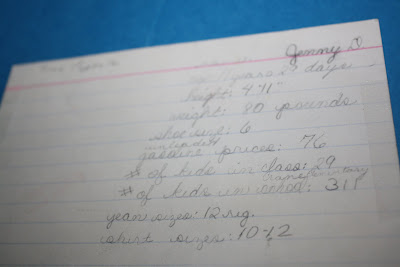 Jenny D
age: 11 years 27 days
height: 4'11"
weight: 80 pounds
shoe size: 6
unleaded
gasoline prices: 76
# of kids in class: 29
# of kids in school: 311
jean sizes: 12 reg.
shirt sizes: 10-12